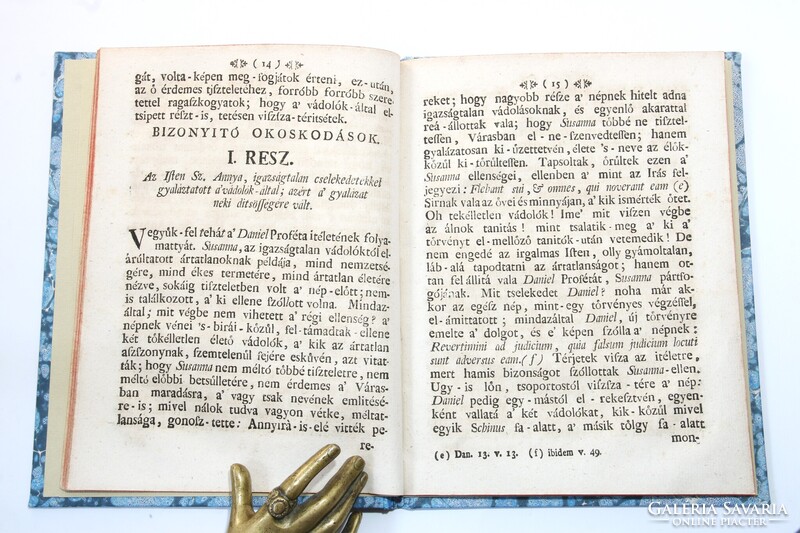 ( 14 )
gát, volta-képen meg-fogjátok érteni, ez-után,
az ő érdemes tiſzteletéhez, forróbb forróbb ſzere-
tettel ragaſzkogyatok; hogy a' vádolók-által el-
tsipett réſzt-is, tetésen viſzſza-téritsétek.
BIZONYITÓ OKOSKODÁSOK.
I. RESZ.
Az Iſten Sz. Annya, igazságtalan cselekedetekkel
gyaláztatott a' vádolók-által; azért a' gyalázat
neki ditsőſségere vált.
Vegyük-fel tehát a' Daniel Proféta itéletének folya-
mattyát. Susanna, az igazságtalan vádolóktól el-
árúltatott ártatlanoknak példája, mind nemzetsé-
gére, mind ékes termetére, mind ártatlan életére
nézve, sokáig tiſzteletben volt a' nép-előtt; nem-
is találkozott, a' ki ellene ſzóllott volna. Mindaz-
által; mit végbe nem vihetett a' régi ellenség? a'
népnek vénei 's-birái-közűl, fel-támadtak-ellene
két tökélletlen élető vádolók, a' kik az ártatlan
aſzſzonynak, ſzemtelenűl fejére eskűvén, azt vitat-
ták; hogy Susanna nem méltó többé tiſzteletre, nem
méltó előbbi betsűlletére, nem érdemes a' Város-
ban maradásra, a' vagy tsak nevének emlitésé-
re-is; mivel nálok tudva vagyon vétke, méltat-
lansága, gonoſz-tette: Annyirà-is-elé vitték pe-
re-
( 15 )
reket; hogy nagyobb réſze a' népnek hitelt adna
igazságtalan vádolásoknak, és egyenlő akarattal
reá-állottak vala; hogy Susanna többé ne tiſztel-
teſſen, Várasban el-ne-ſzenvedteſſen; hanem
gyalázatosan ki-űzettetvén, élete 's-neve az élők-
közűl ki-törűlteſſen. Tapsoltak, örűltek ezen a'
Susanna ellenségei, ellenben a' mint az Irás fel-
jegyezi: Flebant sui, & omnes, qui noverant eam (e)
Sirnak vala az övéi és minnyájan, a' kik ismérték ötet.
Oh tekélletlen vádolók! Ime' mit viszen végbe
az álnok tanitás! mint tsalatik-meg a' ki a'
törvényt el-mellőző tanitók-után vetemedik! De
nem engedé az irgalmas Iſten, olly gyámoltalan,
láb-alá tapodtatni az ártatlanságot; hanem ot-
tan fel állitá vala Daniel Profétát, Susanna pártfo-
gójának. Mit tselekedet Daniel? noha már ak-
kor az egész nép, mint-egy törvényes végzéſſel,
el-ámittatott; mindazáltal Daniel, új törvényre
emelte a' dolgot, és e' képen ſzólla a' népnek:
Revertimini ad judicium, quia falsum judicium locuti
sunt adversus eam. (f) Térjetek viſza az itéletre,
mert hamis bizonságot ſzóllottak Susanna-ellen.
Ugy-is lőn, tsoportostól viſzſza-tére a' nép:
Daniel pedig egy-mástól el-rekeſztvén, egyen-
ként vallatá a' két vádolókat, kik-közűl mivel
egyik Schinus fa-alatt, a' másik tölgy fa-alatt
mon-
(e) Dan. 13. v. 13. (f) ibidem v. 49.
GALÉRIA SAVARIA
ONLINE PIACTÉR